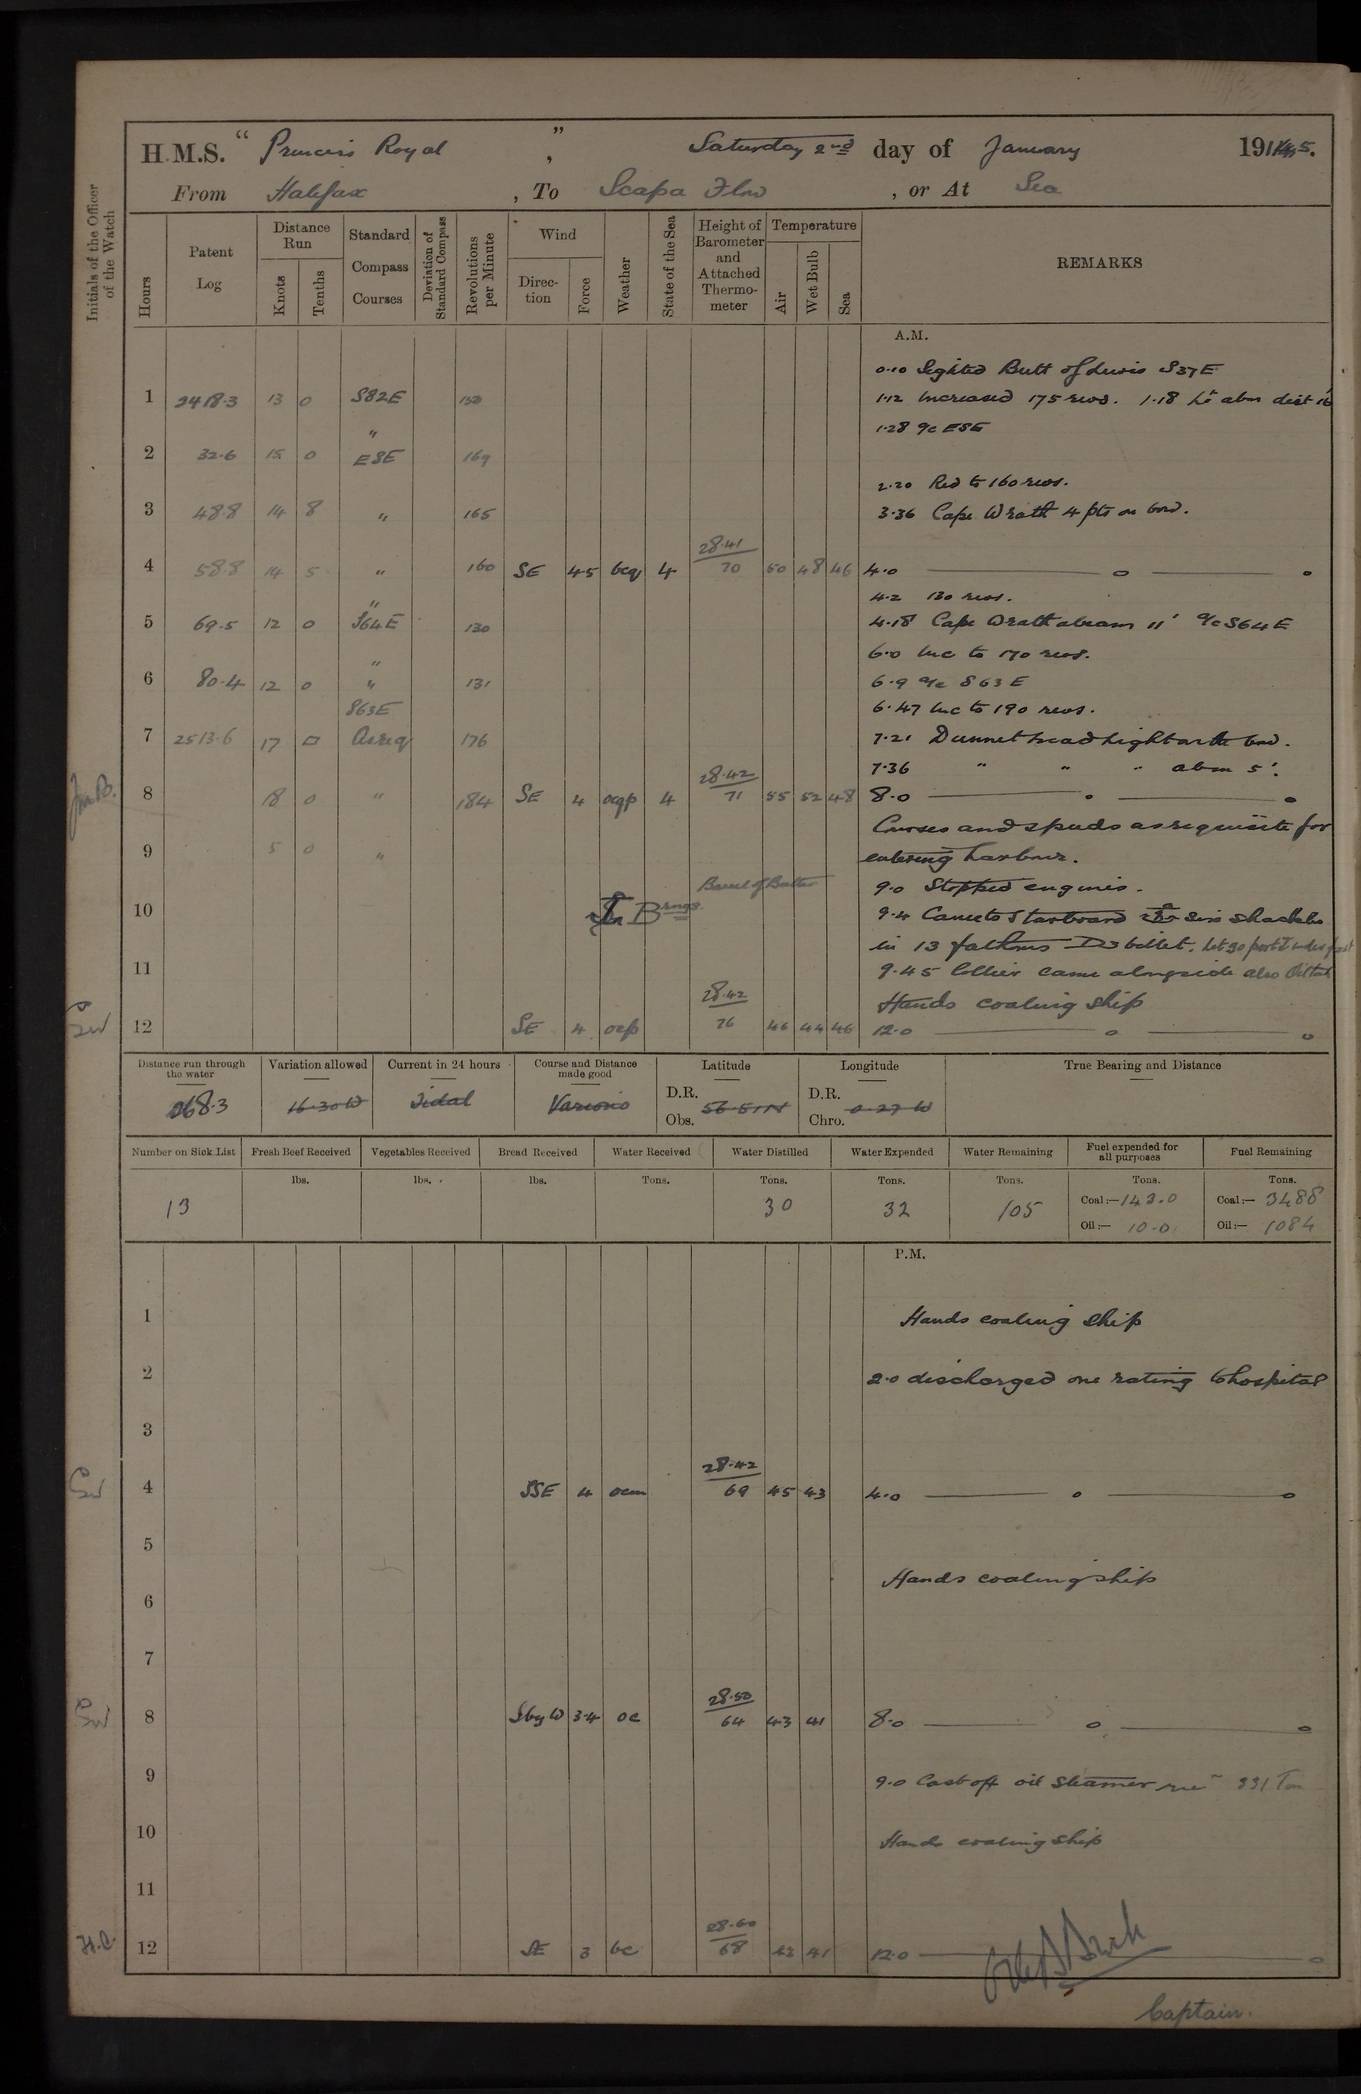 H.M.S. "Princess Royal", Saturday 2nd day of January 1915.
From Halifax, To Scapa Flow, or At Sea
Initials of the Officer of the Watch
Hours
Patent Log
Distance Run
Knots
Tenths
Standard Compass Courses
Deviation of Standard Compass
Revolutions per Minute
Wind
Direction
Force
Weather
State of the Sea
Height of Barometer and Attached Thermometer
Temperature
Air
Wet Bulb
Sea
REMARKS
A.M.
0.10 Sighted Butt of Lewis S37E
1 2418.3 13 0 S82E 150 1.12 Increased 175 revs. 1.18 Lt abm dist 16'
" 1.28 a/c ESE
2 32.6 15 0 ESE 169
2.20 Red to 160 revs.
3 48.8 14 8 " 165 3.36 Cape Wrath 4 pts on bow.
28.41
4 58.8 14 5 " 160 SE 4.5 bcq 4 70 50 48 46 4.0
" 4.2 130 revs.
5 69.5 12 0 S64E 130 4.18 Cape Wrath abeam 11' a/c S64E
" 6.0 Inc to 170 revs.
6 80.4 12 0 " 131 6.9 a/c S63E
S63E 6.47 Inc to 190 revs.
7 2513.6 17 0 As req 176 7.21 Dunnet head light on the bow.
28.42 7.36 " " " abm 5'.
Jm B. 8 18 0 " 184 SE 4 ocqp 4 71 55 52 48 8.0
Courses and speeds as requisite for
9 5 0 " entering harbour.
Barrel of Butter 9.0 Stopped engines.
10 In Brngs 9.4 Came to starboard six shackles
in 13 fathoms D3 billet. Let go port
11 9.45 Collier came alongside also Oil tank
28.42 Hands coaling ship
12 SE 4 ocp 76 46 44 46 12.0
Distance run through the water
Variation allowed
Current in 24 hours
Course and Distance made good
Latitude
Longitude
True Bearing and Distance
268.3 16.30W Tidal Various D.R. Obs. 56.51N D.R. Chro. 0.27 W
Number on Sick List
Fresh Beef Received
Vegetables Received
Bread Received
Water Received
Water Distilled
Water Expended
Water Remaining
Fuel expended for all purposes
Fuel Remaining
lbs. lbs. lbs. Tons. Tons. Tons. Tons. Tons. Tons.
13 30 32 105 Coal:— 143.0 Coal:— 3488
Oil:— 10.0 Oil:— 1084
P.M.
1 Hands coaling ship
2 2.0 discharged one rating to hospital
3
28.42
4 SSE 4 ocm 69 45 43 4.0
5
Hands coaling ship
6
7
28.50
8 S by W 3.4 oc 64 43 41 8.0
9 9.0 Cast off oil steamer 331 Ton
10 Hands coaling ship
11
28.60
H.C. 12 SE 3 bc 68 42 41 12.0
Captain.